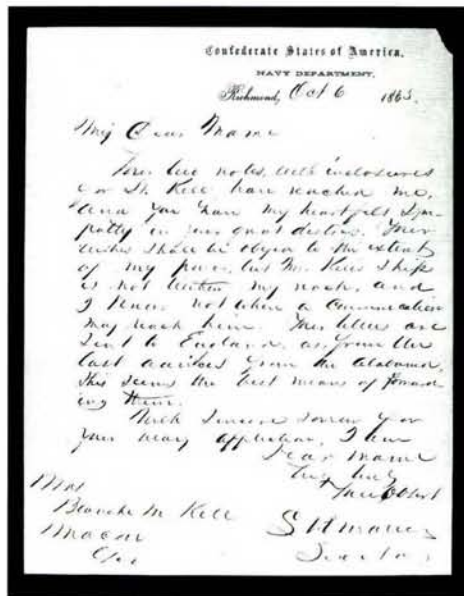 Confederate States of America,
NAVY DEPARTMENT,
Richmond, Oct 6 1863.
My Dear Mame
Your two notes, with inclosures
for Lt. Kell have reached me,
and you have my heartfelt Sym-
pathy in your great distress. Your
wishes shall be obeyed to the extent
of my power, but Mr. Kell's Ship
is not within my reach, and
I know not when a Communication
may reach him. Your letters are
sent to England, as, from the
last advices from the Alabama,
this seems the best means of forward
ing them.
With Sincere sorrow for
your heavy affliction, I am
Dear Mame
Truly
Your Obt
Mrs
Blanche M Kell
Macon
Geo
S R Mallory